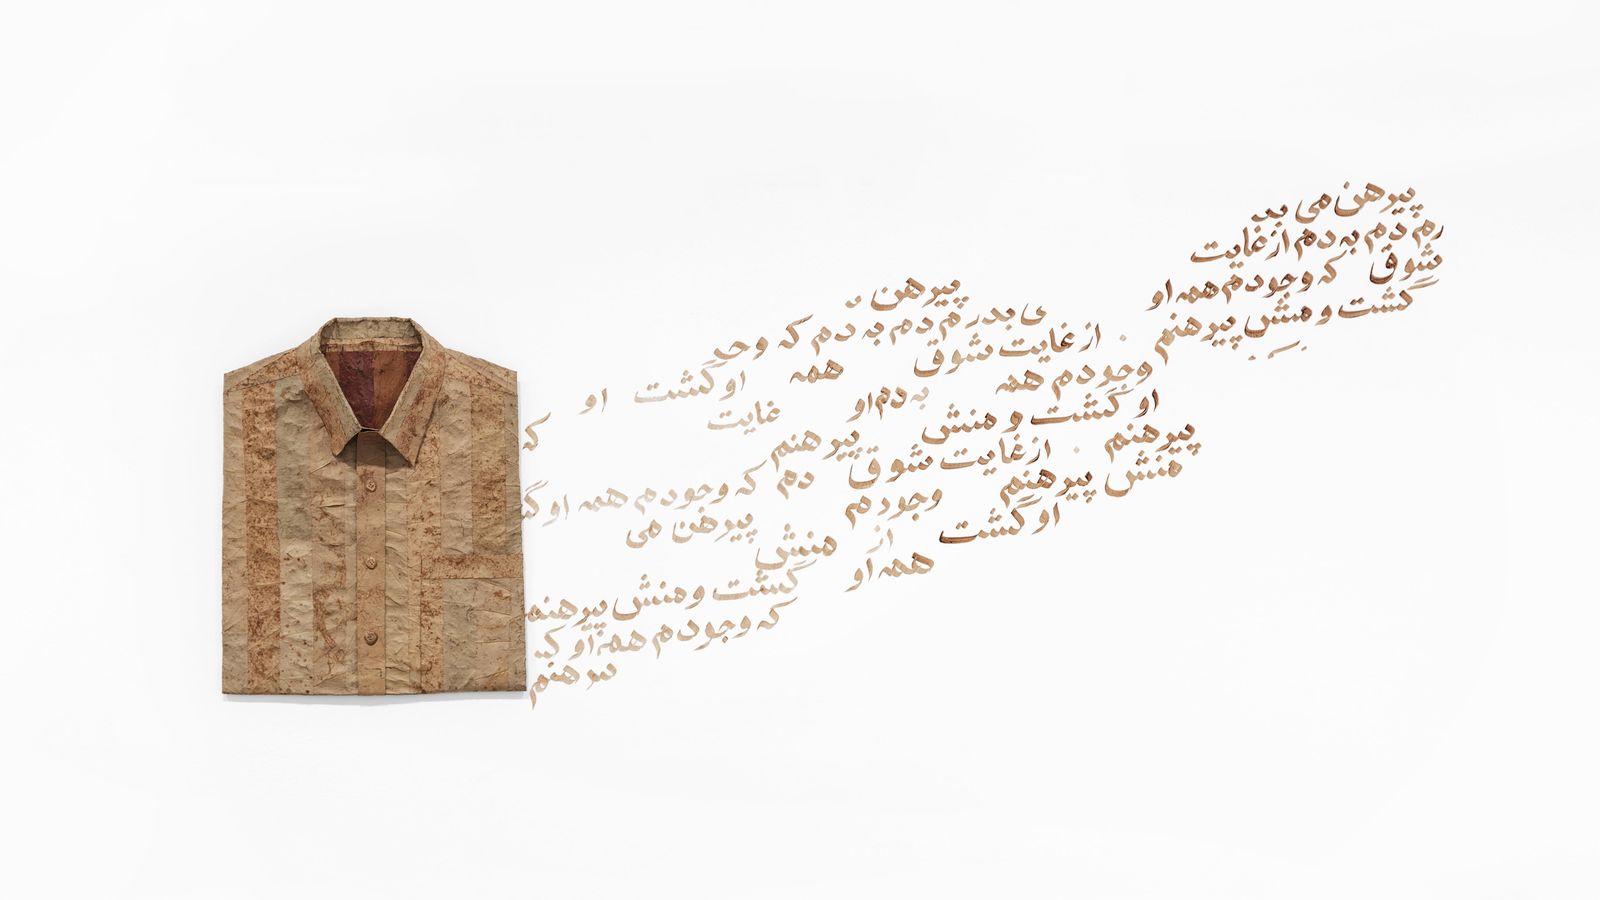 پیرهن می بد
رم دم به دم از غایت
شوق که وجودم همه او
گشت و منش پیرهنم
پیرهن
ی بدرم دم به دم که وجد
از غایت شوق همه او گشت او
وجودم همه به دم او غایت که
او گشت و منش پیرهنم
پیرهنم از غایت شوق دم که وجودم همه او
منش پیرهنم وجودم پیرهن می
او گشت از منش
همه او گشت و منش پیرهنم
که وجودم همه او